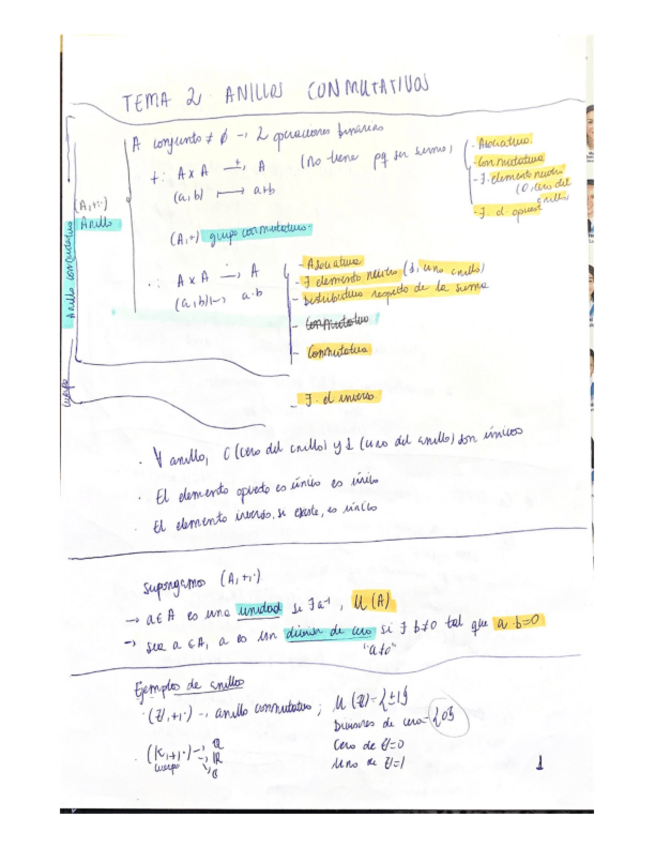 TEMA 2 ANILLOS CONMUTATIVOS
A conjunto ≠ ∅ → 2 operaciones binarias
+: A x A —+→ A (no tiene pq ser suma)
(a,b) ⟼ a+b
- Asociativa
- Conmutativa
- ∃. elemento neutro
(0, cero del anillo)
- ∃. el opuesto
(A,+,·)
Anillo
Anillo conmutativo
cuerpo
(A,+) grupo conmutativo
·: A x A —·→ A
(a,b) ⟼ a·b
- Asociativa
- ∃ elemento neutro (1, uno anillo)
- Distributiva respecto de la suma
- Conmutativa
- Conmutativa
- ∃. el inverso
· ∀ anillo, 0 (cero del anillo) y 1 (uno del anillo) son únicos
· El elemento opuesto es único es único
· El elemento inverso, se existe, es único
supongamos (A,+,·)
→ a∈A es una unidad si ∃ a⁻¹, U(A)
→ sea a ∈A, a es un divisor de cero si ∃ b≠0 tal que a·b=0
"a≠0"
Ejemplos de anillos
· (ℤ,+,·) → anillo conmutativo; U(ℤ)={±1}
Divisores de cero={0}
Cero de ℤ=0
Uno de ℤ=1
· (K,+,·) → ℚ
cuerpo → ℝ
→ ℂ
1